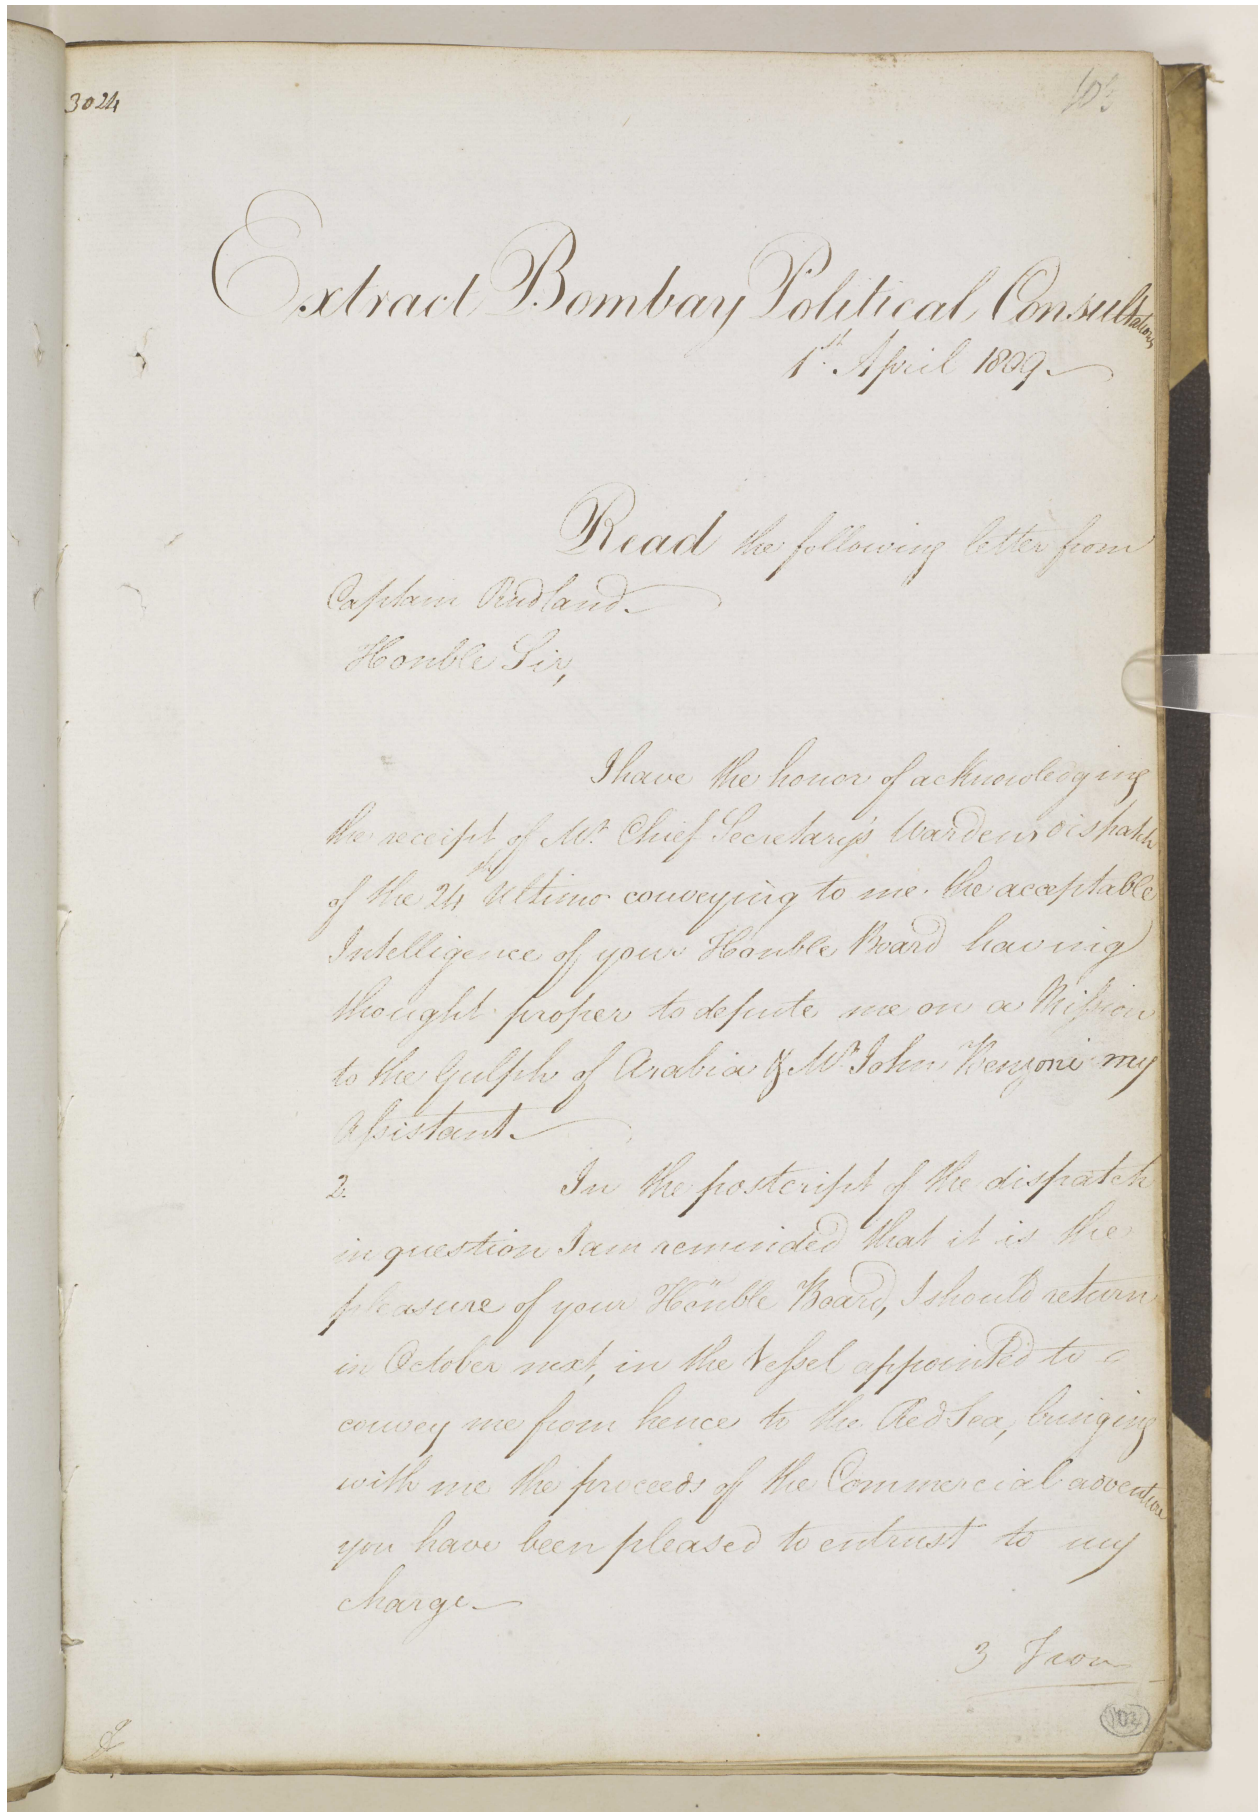 3024
103
Extract Bombay Political Consultations
1st. April 1809.
Read the following letter from
Captain Rudland.
Honble Sir,
I have the honor of acknowledging
the receipt of Mr. Chief Secretary's Warden's dispatch
of the 24th Ultimo conveying to me the acceptable
Intelligence of your Honble Board having
thought proper to depute me on a Mission
to the Gulph of Arabia & Mr John Benzoni my
Assistant.
2. In the postcript of the dispatch
in question I am reminded that it is the
pleasure of your Honble Board, I should return
in October next, in the Vessel appointed to
convey me from hence to the Red Sea, bringing
with me the proceeds of the Commercial adventure
you have been pleased to entrust to my
charge.
3 From
103